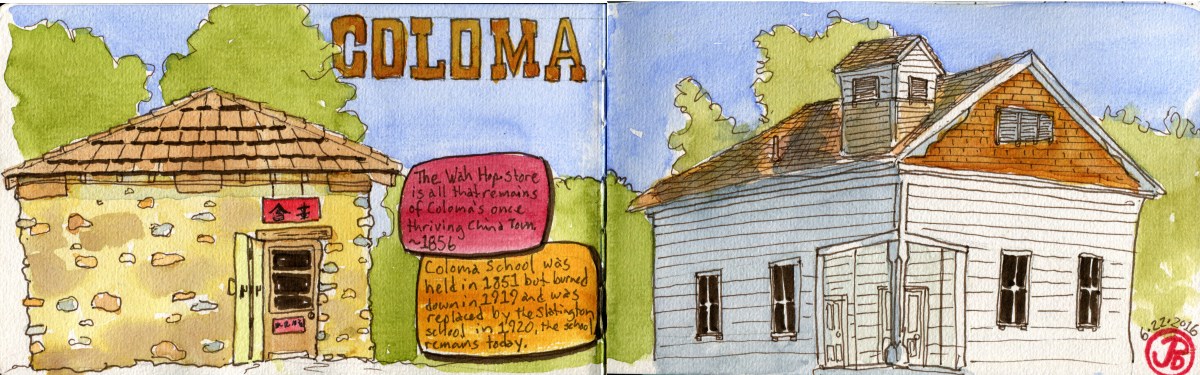 COLOMA
The Wah Hop Store
is all that remains
of Coloma's once
thriving China Town.
~1856
Coloma School was
held in 1851 but burned
down in 1919 and was
replaced by the Slatington
school in 1920, the school
remains today.
6.22.2016